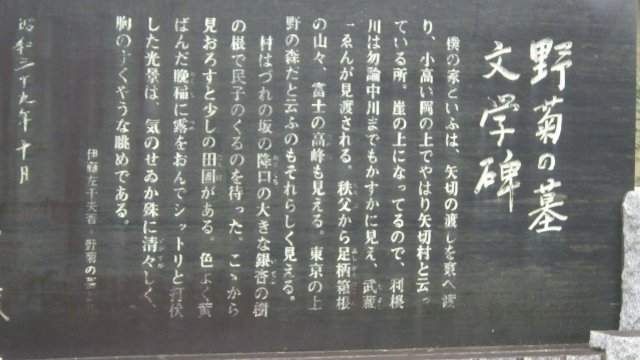 野菊の墓
文学碑
僕の家といふは、矢切の渡しを東へ渡
り、小高い岡の上でやはり矢切村と云っ
ている所。崖の上になってるので、利根
川は勿論中川までもかすかに見え、武蔵
一ゑんが見渡される。秩父から足柄箱根
の山々、富士の高峰も見える。東京の上
野の森だと云ふのもそれらしく見える。
村はづれの坂の降口の大きな銀杏の樹
の根で民子のくるのを待った。こゝから
見おろすと少しの田圃がある。色よく黄
ばんだ晩稲に露をおんでシットリと打伏
した光景は、気のせゐか殊に清々しく、
胸のすくやうな眺めである。
伊藤左千夫著・野菊の
昭和三十九年十月